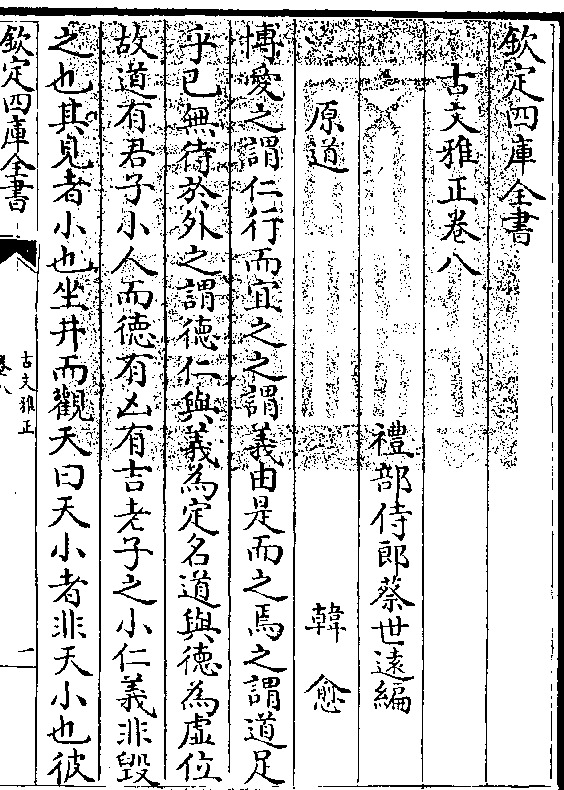 欽定四庫全書
古文雅正卷八
禮部侍郎蔡世遠編
原道 韓愈
博愛之謂仁行而宜之之謂義由是而之焉之謂道足
乎已無待於外之謂徳仁與義為定名道與徳為虚位
故道有君子小人而徳有凶有吉老子之小仁義非毁
之也其見者小也坐井而觀天曰天小者非天小也彼
欽定四庫全書
古文雅正
卷八
一